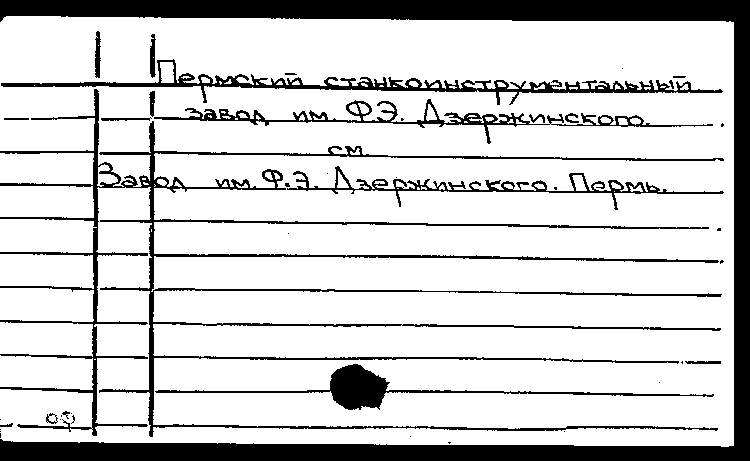 Пермский станкоинструментальный
завод им. Ф.Э. Дзержинского.
см.
Завод им. Ф.Э. Дзержинского. Пермь.